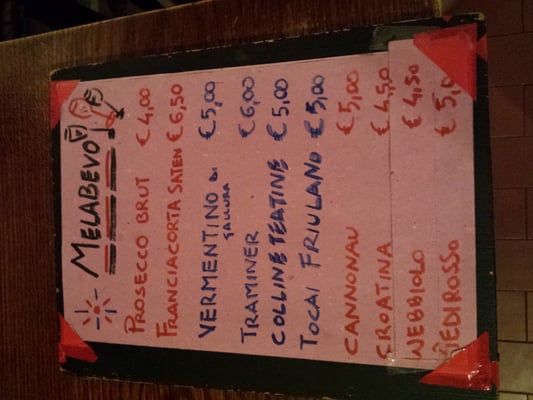 MELABEVO
PROSECCO BRUT € 4,00
FRANCIACORTA SATEN € 6,50
VERMENTINO DI GALLURA € 5,00
TRAMINER € 6,00
COLLINE TEATINE € 5,00
TOCAI FRIULANO € 5,00
CANNONAU € 5,00
CROATINA € 4,50
NEBBIOLO € 4,50
PIEDIROSSO € 5,0